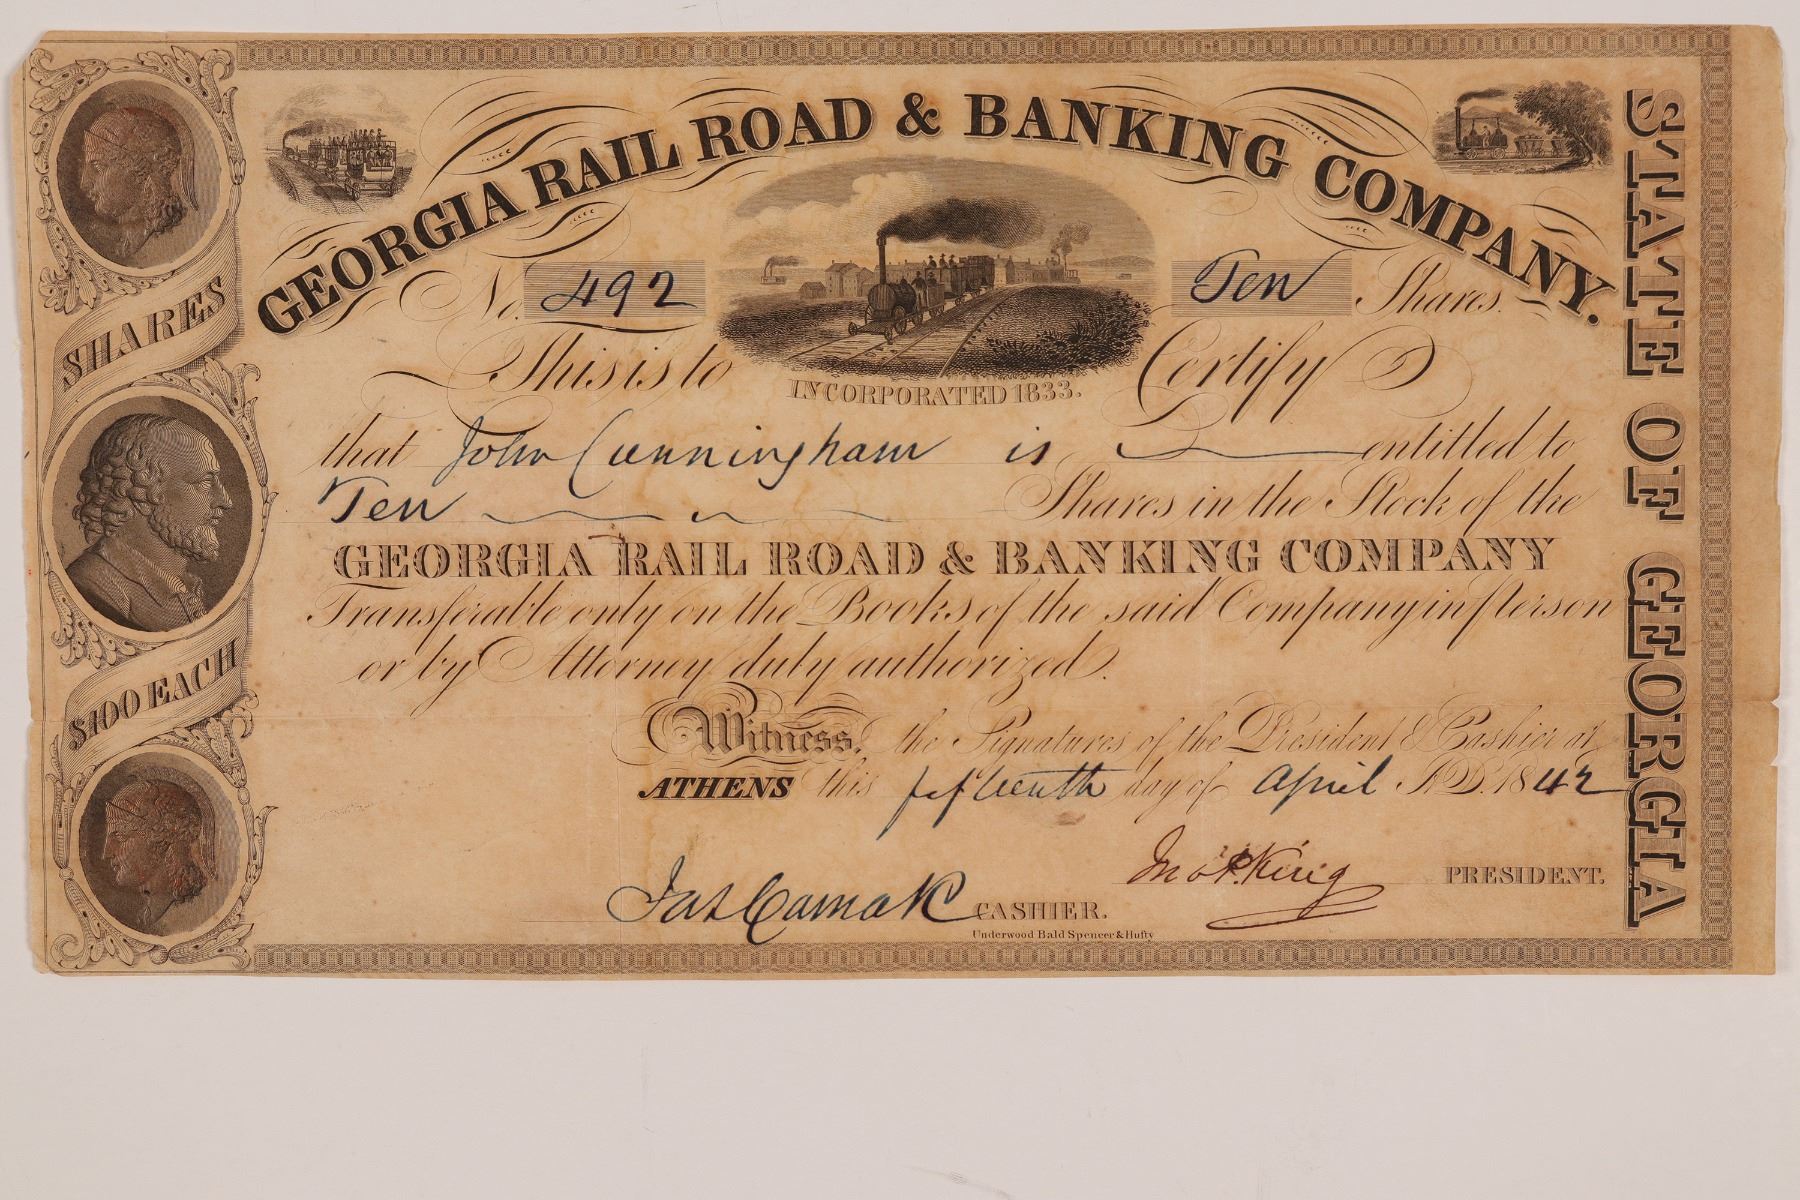 GEORGIA RAIL ROAD & BANKING COMPANY.
No. 492
Ten Shares.
This is to Certify
INCORPORATED 1833.
that John Cunningham is entitled to
Ten Shares in the Stock of the
GEORGIA RAIL ROAD & BANKING COMPANY
Transferable only on the Books of the said Company in person
or by Attorney duly authorized.
Witness, the Signatures of the President & Cashier at
ATHENS this fifteenth day of April A.D. 1842
Jno P. King PRESIDENT.
Jas Camak CASHIER.
Underwood Bald Spencer & Hufty
SHARES
$100 EACH
STATE OF GEORGIA